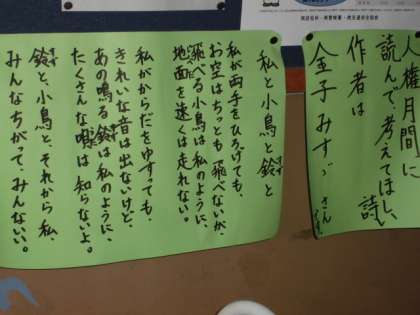 人権月間に
読んで考えてほしい詩
作者は
金子みすゞさん
です。
私と小鳥と鈴と
私が両手をひろげても、
お空はちっとも飛べないが、
飛べる小鳥は私のように、
地面を速くは走れない。
私がからだをゆすっても、
きれいな音は出ないけど、
あの鳴る鈴は私のように、
たくさんな唄は知らないよ。
鈴と、小鳥と、それから私、
みんなちがって、みんないい。